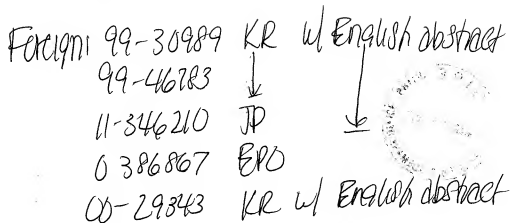 Foreign: 99-30989 KR w/ English abstract
99-46783
11-346210 JP
0 386867 EPO
00-29343 KR w/ English abstract